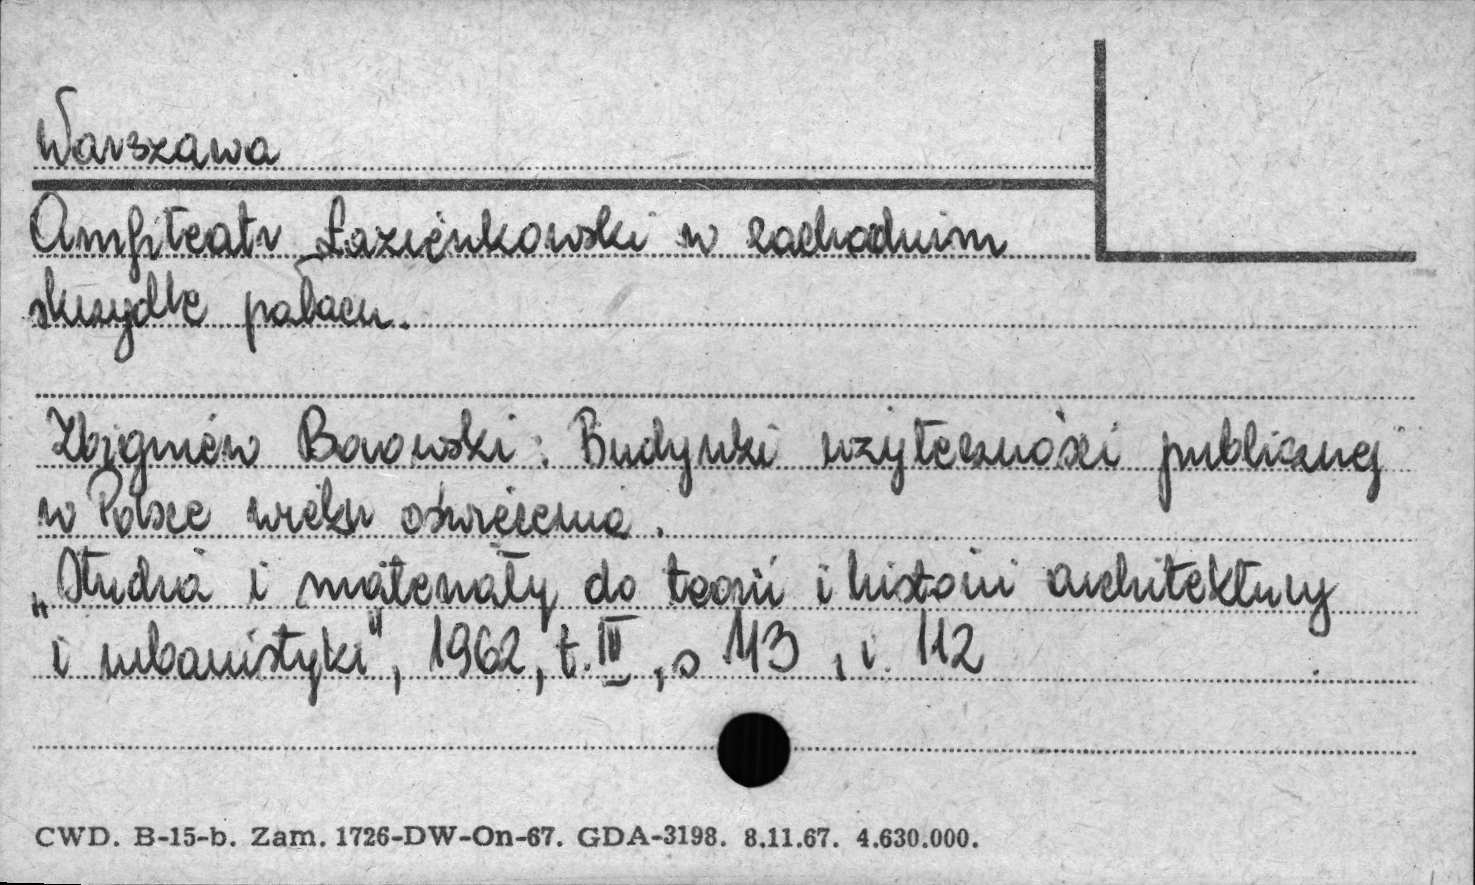 Warszawa
Amfiteatr Łazienkowski w zachodnim
skrzydle pałacu.
Zbigniew Borowski: Budynki użyteczności publicznej
w Polsce wieku oświecenia.
„Studia i materiały do teorii i historii architektury
i urbanistyki", 1962, t. III, s 113, i. 112
CWD. B-15-b. Zam. 1726-DW-On-67. GDA-3198. 8.11.67. 4.630.000.